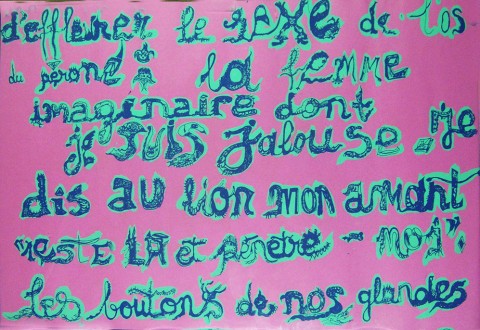 d'effleurer le sexe de l'os
du péroné : la femme
imaginaire dont
je suis jalouse. Je
dis au lion mon amant
"reste là et pénètre-moi".
Les boutons de nos glandes